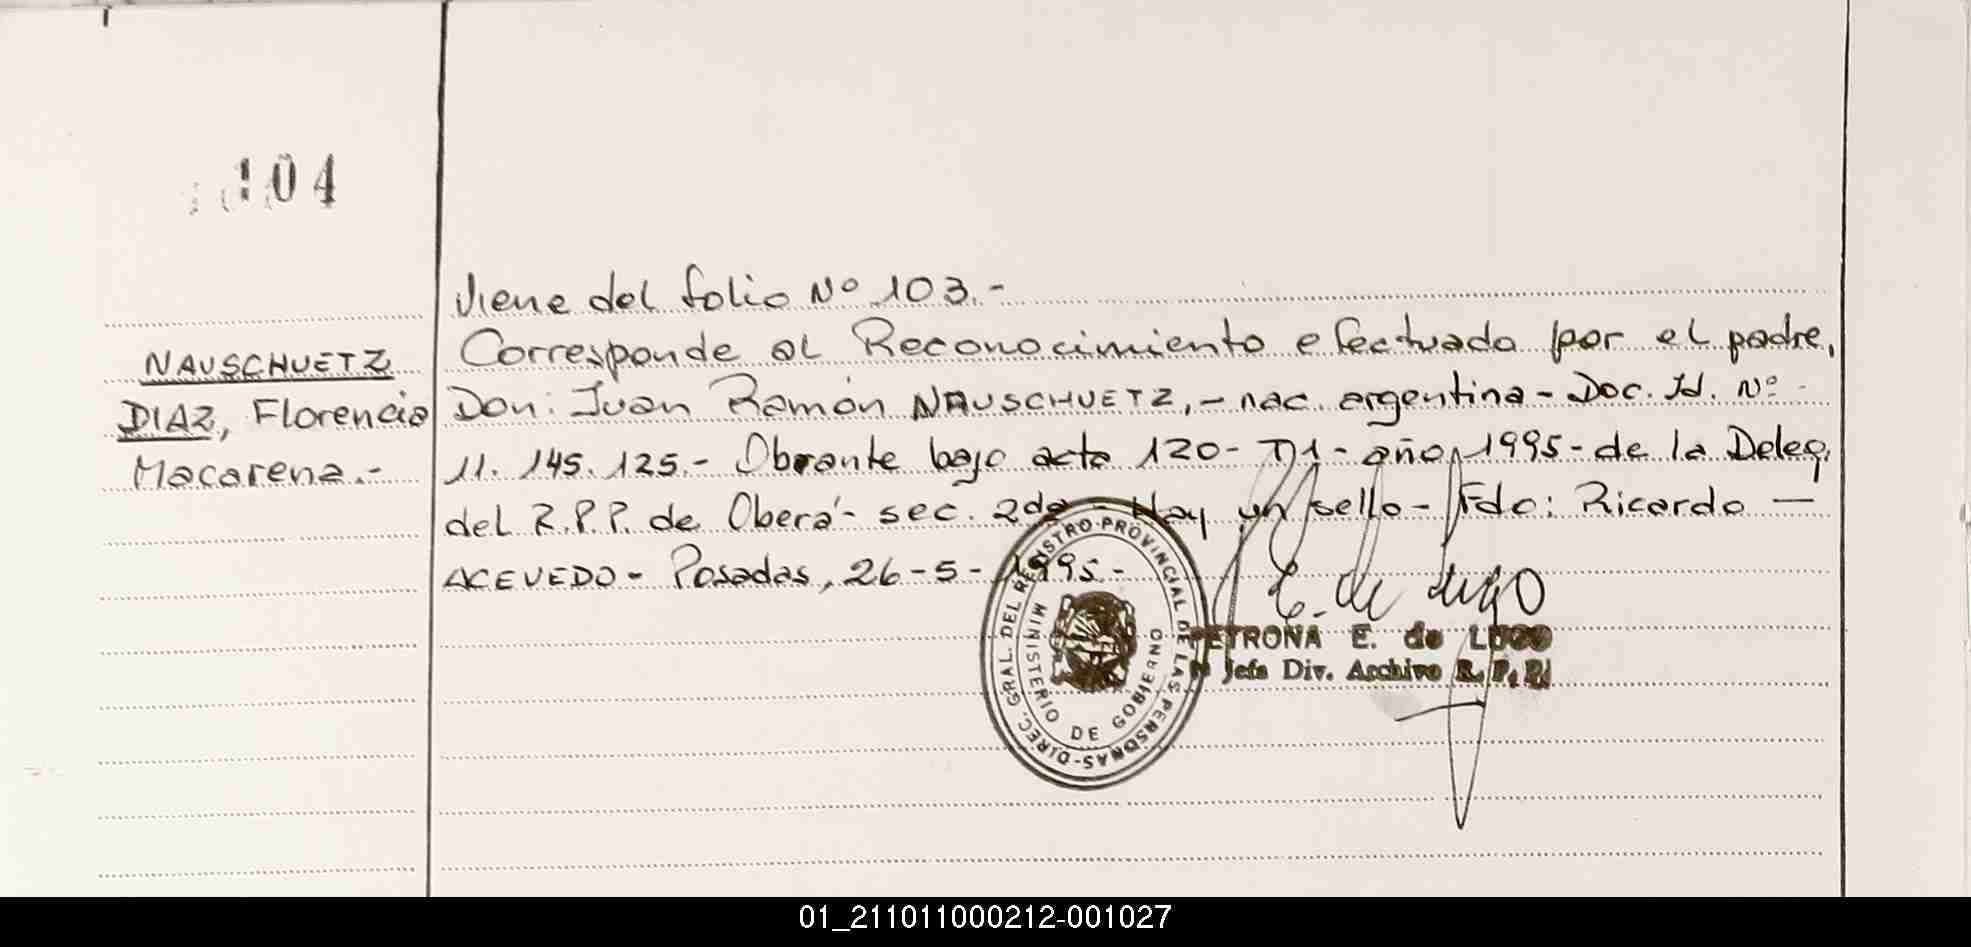 104
NAUSCHUETZ
DIAZ, Florencia
Macarena.-
Viene del folio Nº 103.-
Corresponde al Reconocimiento efectuado por el padre,
Don: Juan Ramón NAUSCHUETZ,- nac. argentina - Doc. Id. Nº
11.145.125.- Obrante bajo acta 120- T1- año 1995- de la Deleg.
del R.P.P. de Oberá- sec. 2da - Hay un sello- Fdo: Ricardo —
ACEVEDO - Posadas, 26-5-1995.-
E. de Lugo
PETRONA E. de LUGO
Jefa Div. Archivo R. P. P.
DIREC. GRAL. DEL REGISTRO PROVINCIAL DE LAS PERSONAS-
MINISTERIO DE GOBIERNO
01_211011000212-001027